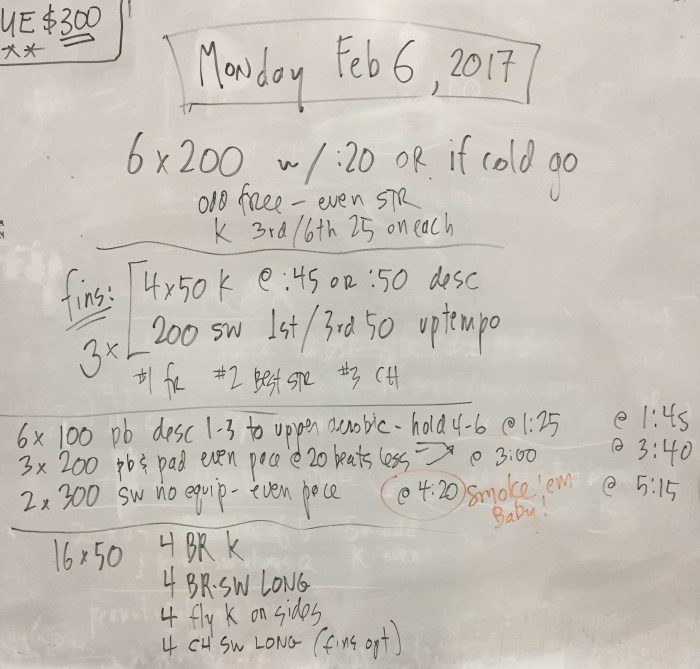 UE $300
**
Monday Feb 6, 2017
6 x 200 w/ :20 OR if cold go
odd free - even STR
K 3rd/6th 25 on each
fins: 4x50 K @ :45 OR :50 desc
3x 200 SW 1st/3rd 50 uptempo
#1 fr #2 Best STR #3 CH
6 x 100 pb desc 1-3 to upper aerobic - hold 4-6 @ 1:25 @ 1:45
3 x 200 pb & pad even pace @ 20 beats less → @ 3:00 @ 3:40
2 x 300 SW no equip - even pace @ 4:20 Smoke 'em Baby! @ 5:15
16 x 50 4 BR K
4 BR-SW LONG
4 fly K on sides
4 CH SW LONG (fins opt)